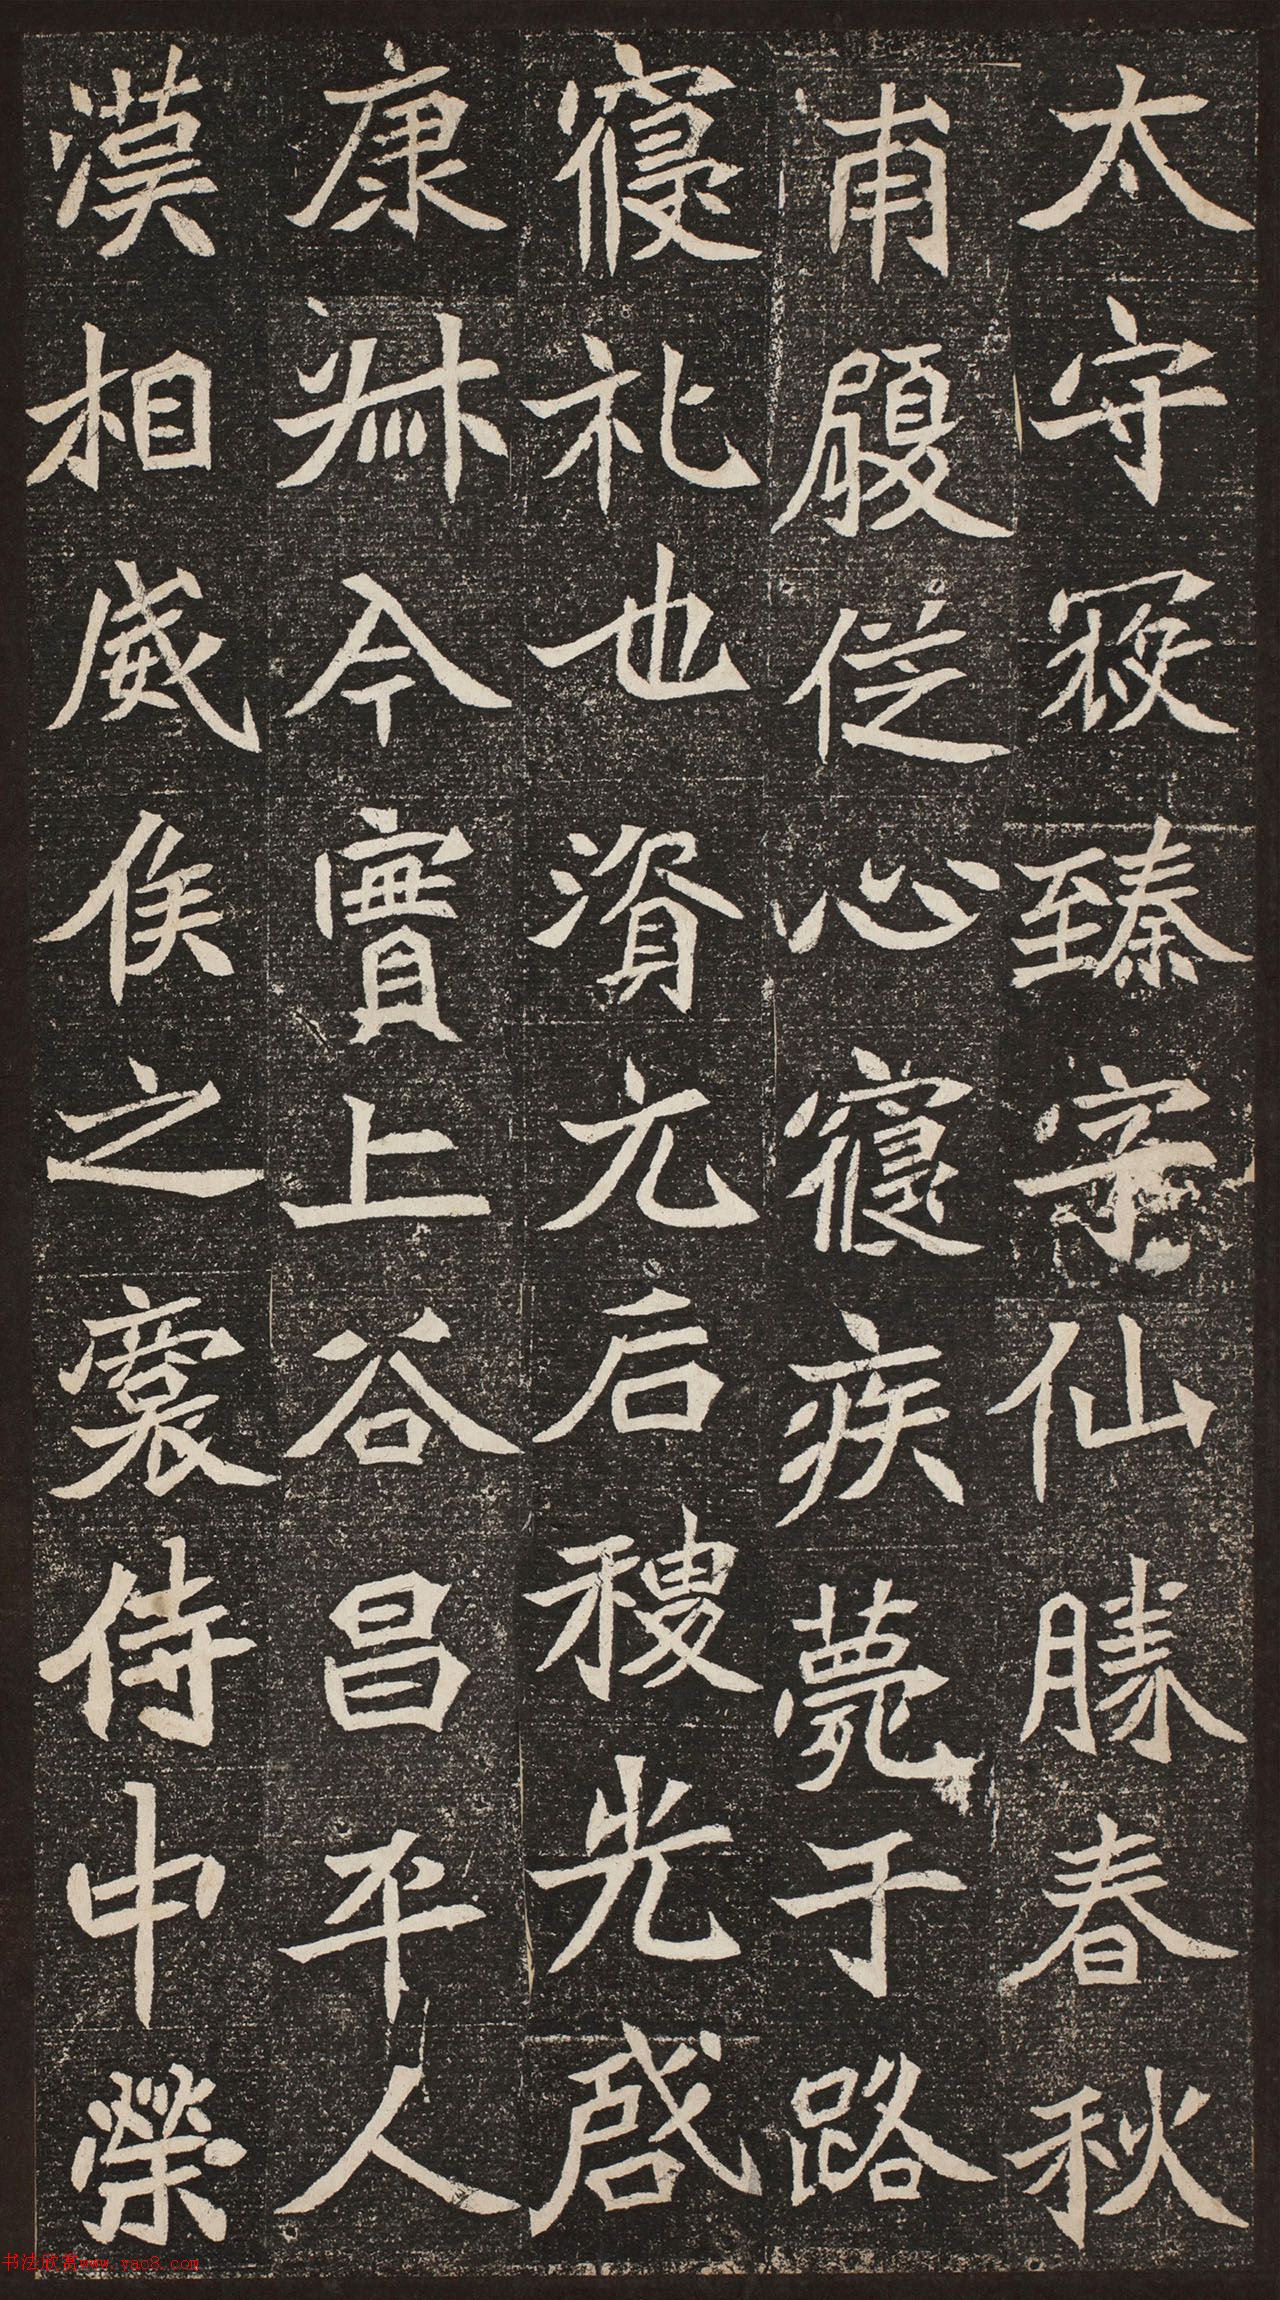 太守寇臻字仙勝春秋
甫履從心寢疾薨于路
寢礼也資元后稷光啓
康叔今實上谷昌平人
漢相威侯之裔侍中榮
书法欣赏www.yac8.com